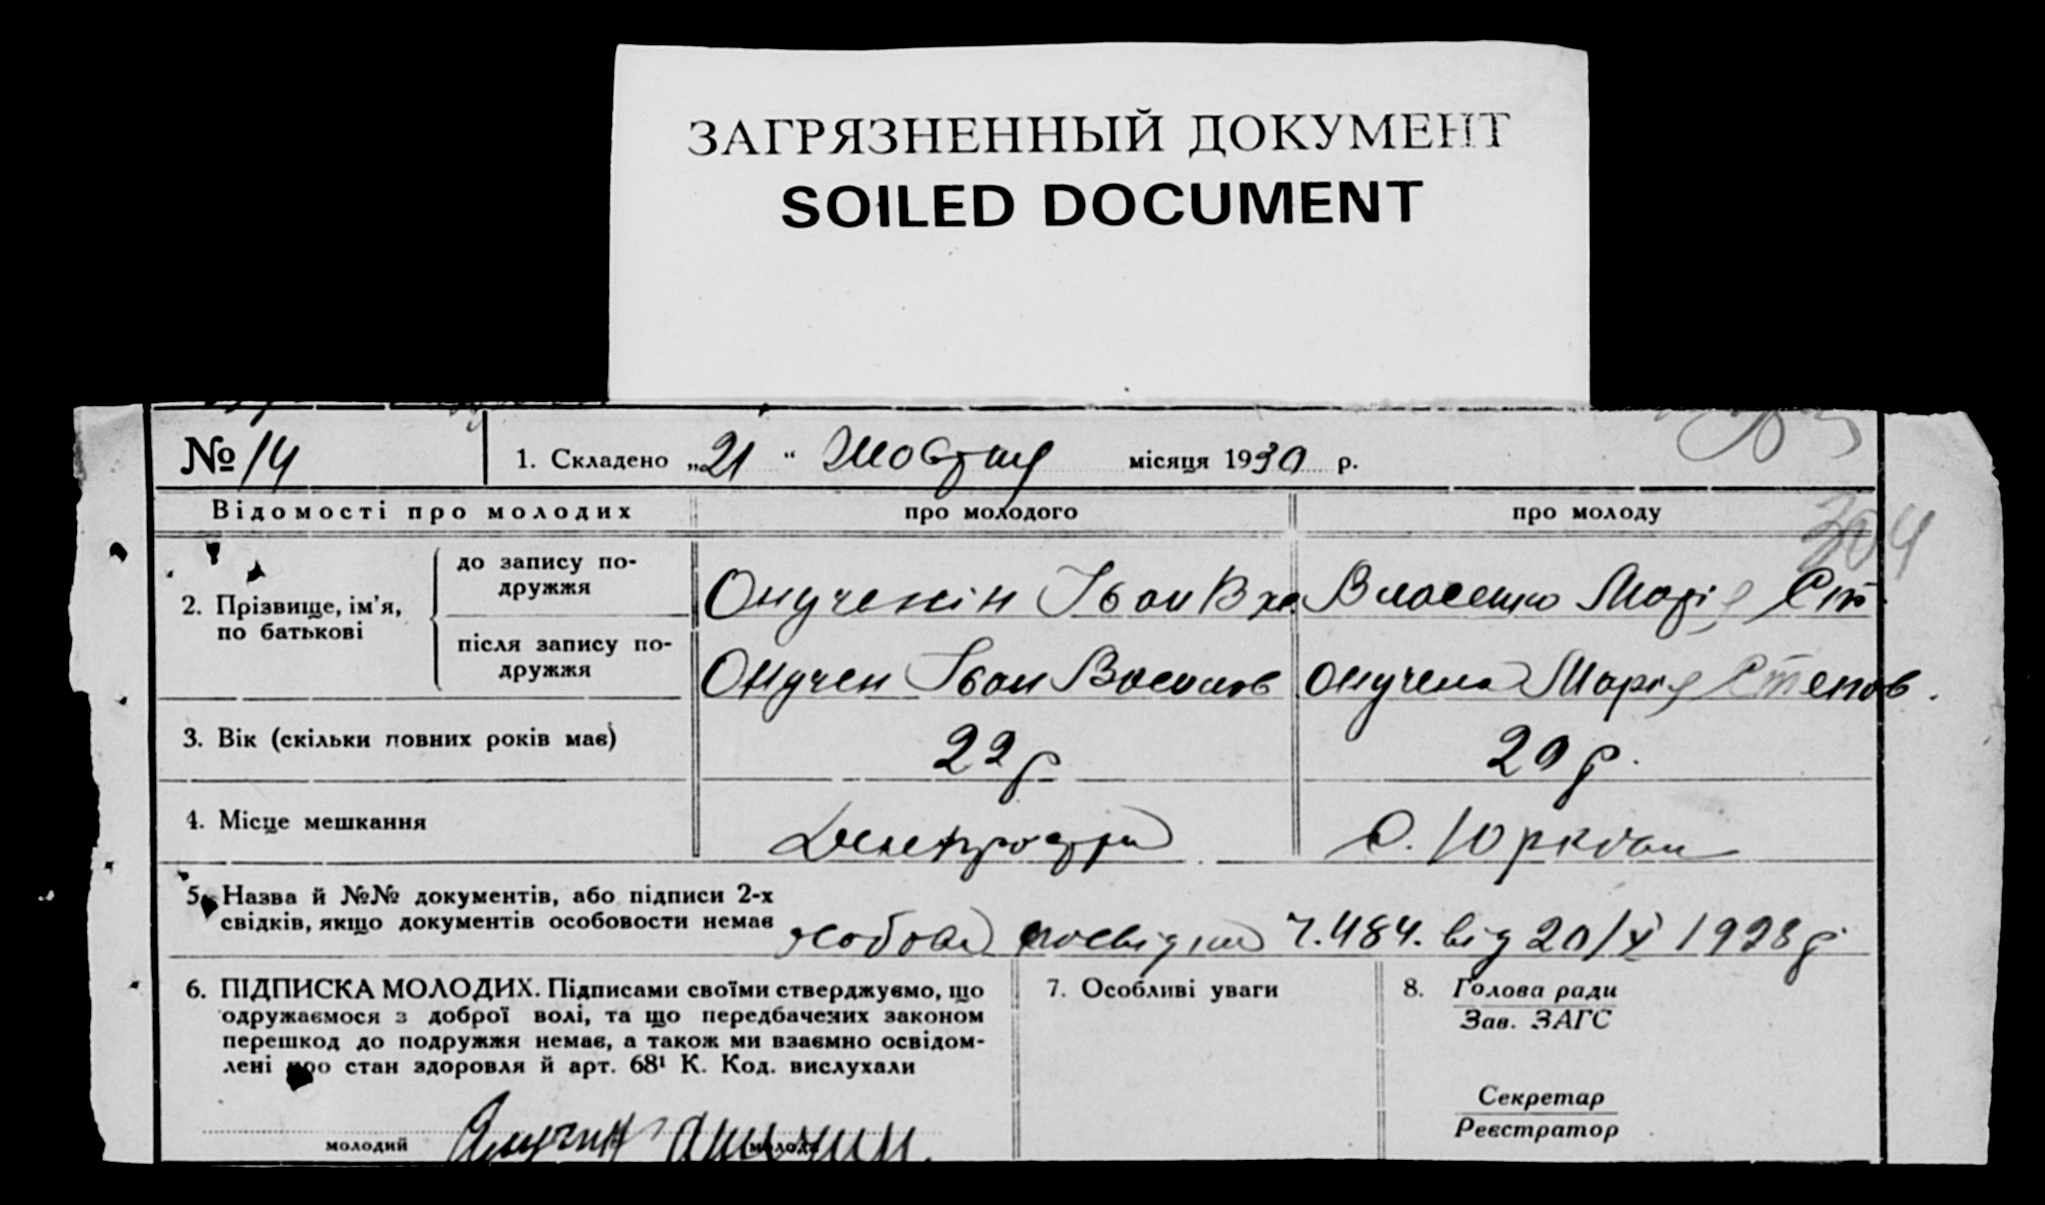 ЗАГРЯЗНЕННЫЙ ДОКУМЕНТ
SOILED DOCUMENT
№ 14
1. Складено „21“ Жовтня місяця 1930 р.
304
Відомості про молодих
про молодого
про молоду
2. Прізвище, ім'я, по батькові
до запису подружжя
Онученін Іван В
Власенко Марія Ст.
після запису подружжя
Онучен Іван Васильов
Онучена Марія Степов.
3. Вік (скільки повних років має)
22 р
20 р.
4. Місце мешкання
С. Юрківка
5. Назва й №№ документів, або підписи 2-х
свідків, якщо документів особовости немає
особова посвідка ч. 484. від 20/X 1928 р
6. ПІДПИСКА МОЛОДИХ. Підписами своїми стверджуємо, що
одружаємося з доброї волі, та що передбачених законом
перешкод до подружжя немає, а також ми взаємно освідом-
лені про стан здоровля й арт. 68¹ К. Код. вислухали
молодий
молода
7. Особливі уваги
8. Голова ради
Зав. ЗАГС
Секретар
Реєстратор